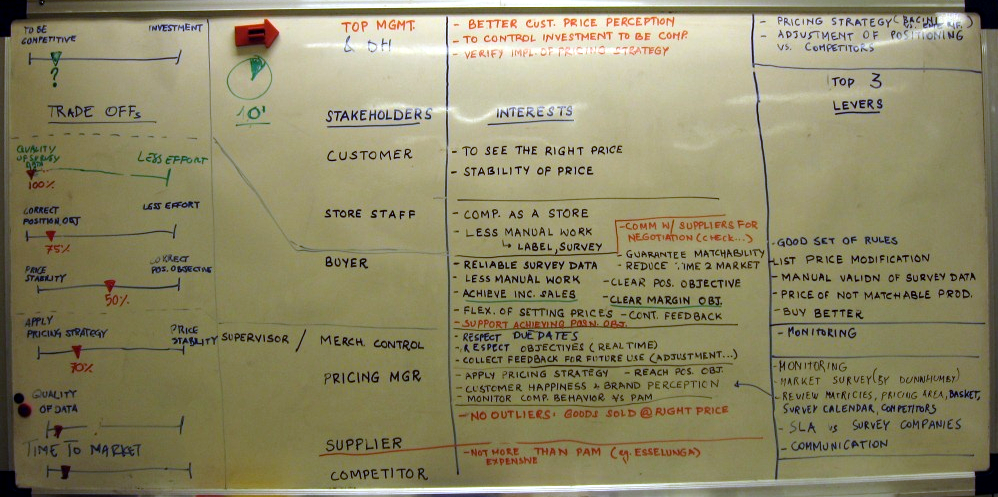 TO BE
COMPETITIVE
INVESTMENT
?
TRADE OFFs
QUALITY
OF SURVEY
LESS EFFORT
100%
CORRECT
POSITION. OBJ
LESS EFFORT
75%
PRICE
STABILITY
CORRECT
POS. OBJECTIVE
50%
APPLY
PRICING STRATEGY
PRICE
STABILITY
70%
QUALITY
OF DATA
TIME TO MARKET
10'
TOP MGMT.
& DH
- BETTER CUST. PRICE PERCEPTION
- TO CONTROL INVESTMENT TO BE COMP.
- VERIFY IMPL. OF PRICING STRATEGY
- PRICING STRATEGY
- ADJUSTMENT OF POSITIONING
VS. COMPETITORS
STAKEHOLDERS
INTERESTS
TOP 3
LEVERS
CUSTOMER
- TO SEE THE RIGHT PRICE
- STABILITY OF PRICE
STORE STAFF
- COMP. AS A STORE
- LESS MANUAL WORK
↳ LABEL, SURVEY
- COMM W/ SUPPLIERS FOR
NEGOTIATION (CHECK...)
BUYER
- RELIABLE SURVEY DATA
- LESS MANUAL WORK
- ACHIEVE INC. SALES
- FLEX. OF SETTING PRICES
- SUPPORT ACHIEVING POSN. OBJ.
- GUARANTEE MATCHABILITY
- REDUCE TIME 2 MARKET
- CLEAR POS. OBJECTIVE
- CLEAR MARGIN OBJ.
- CONT. FEEDBACK
- GOOD SET OF RULES
- LIST PRICE MODIFICATION
- MANUAL VALIDN OF SURVEY DATA
- PRICE OF NOT MATCHABLE PROD.
- BUY BETTER
SUPERVISOR / MERCH. CONTROL
- RESPECT DUE DATES
- RESPECT OBJECTIVES (REAL TIME)
- COLLECT FEEDBACK FOR FUTURE USE (ADJUSTMENT...)
- MONITORING
PRICING MGR
- APPLY PRICING STRATEGY - REACH POS. OBJ.
- CUSTOMER HAPPINESS & BRAND PERCEPTION
- MONITOR COMP. BEHAVIOR VS PAM
- NO OUTLIERS: GOODS SOLD @ RIGHT PRICE
- MONITORING
- MARKET SURVEY (BY DUNNHUMBY)
- REVIEW MATRICIES, PRICING AREA, BASKET,
SURVEY CALENDAR, COMPETITORS
- SLA VS SURVEY COMPANIES
- COMMUNICATION
SUPPLIER
- NOT MORE THAN PAM (eg. ESSELUNGA)
EXPENSIVE
COMPETITOR